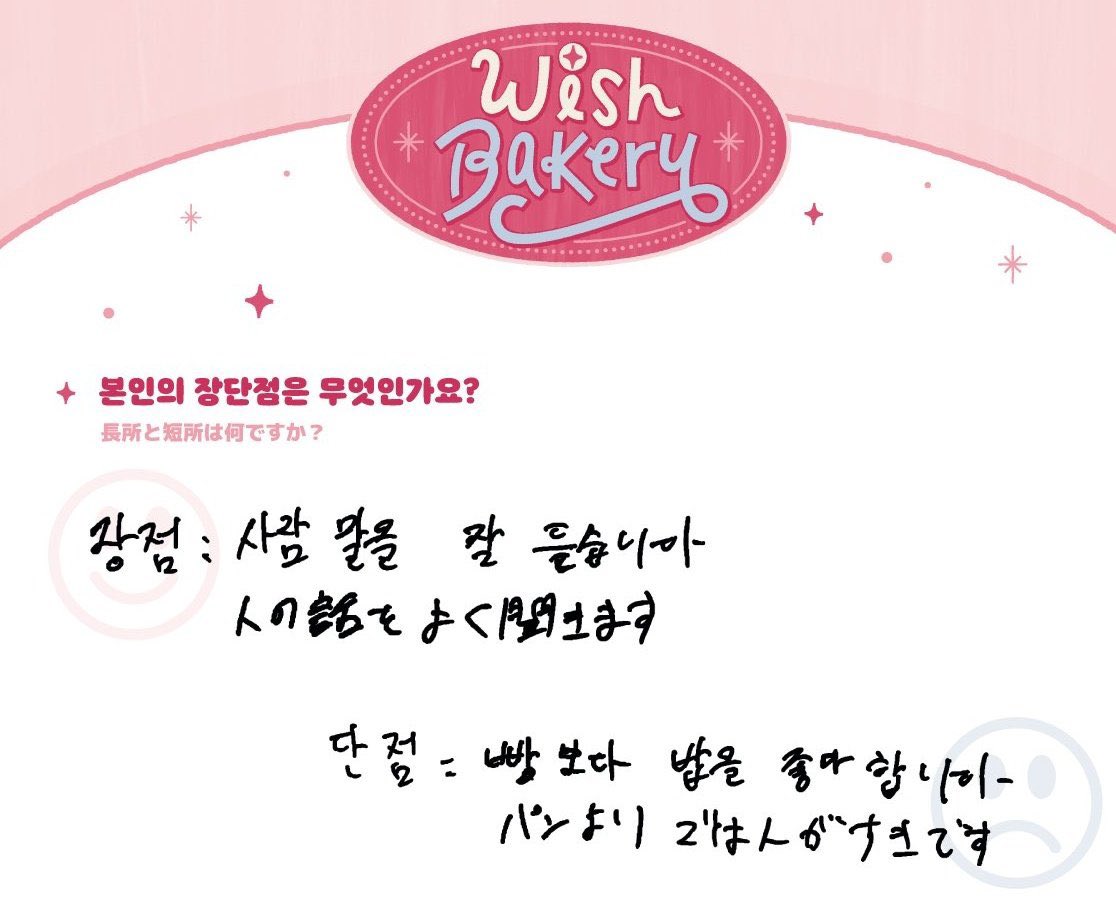 Wish
Bakery
본인의 장단점은 무엇인가요?
長所と短所は何ですか？
장점 : 사람 말을 잘 듣습니다
人の話をよく聞きます
단점 : 빵보다 밥을 좋아합니다
パンよりごはんがすきです